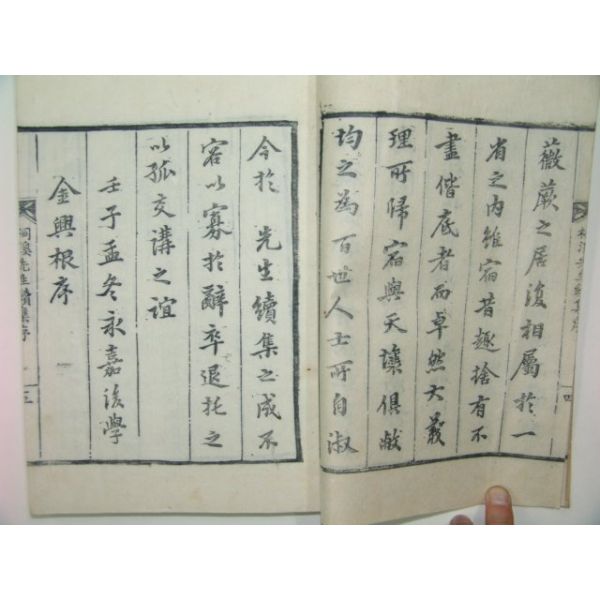 薇蕨之居復相屬於一
省之內雖宿昔趣捨有不
盡偕底者而卓然大義
理所歸宿與天壤俱敝
均之為百世人士所自淑
四
今於 先生續集之成不
容以寡於辭卒退托之
以孤交講之誼
壬子孟冬永嘉後學
金興根序
桐溪先生續集序
三